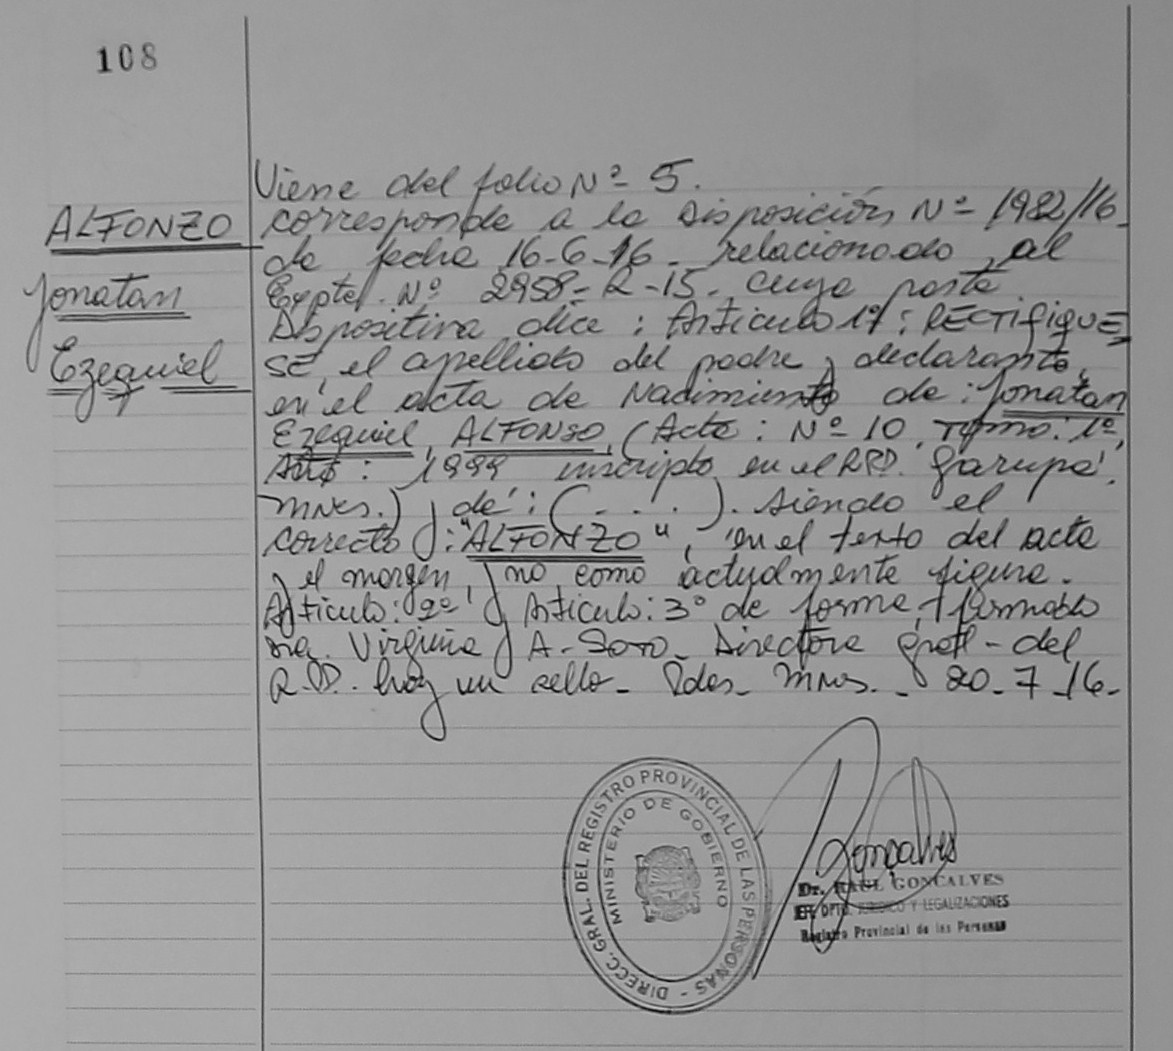 108
ALFONZO
Jonatan
Ezequiel
Viene del folio Nº 5.
corresponde a la Disposición Nº 1982/16
de fecha 16-6-16. relacionado al
Expte. Nº 2958-R-15. cuya parte
Dispositiva dice: Artículo 1º: RECTIFIQUE
SE, el apellido del padre y declarante,
en el acta de Nacimiento de: Jonatan
Ezequiel, ALFONSO, (Acta: Nº 10, Tomo: 1º,
Año: 1999 inscripto en el RPD. Garupá,
mnes.) y de: (. . . .). siendo el
correcto: "ALFONZO", en el texto del acta
y el margen, y no como actualmente figura.
Artículo: 2º y Artículo: 3º de forma, firmado
Virginia A. Soto. Directora Gral. del
R.P. hay un sello. Pdas. Mnes. 20-7-16.
DIRECC. GRAL. DEL REGISTRO PROVINCIAL DE LAS PERSONAS -
MINISTERIO DE GOBIERNO
Goncalves
Dr. RAUL GONCALVES
JEFE DPTO. JURIDICO Y LEGALIZACIONES
Registro Provincial de las Personas